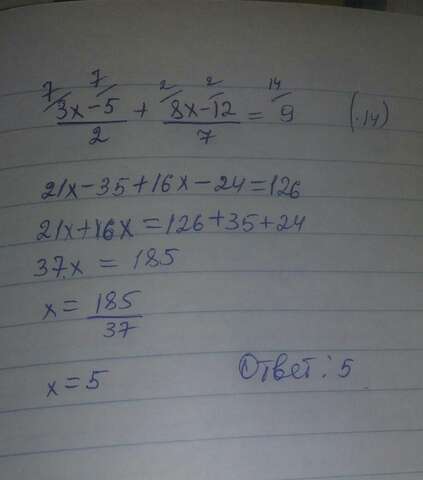 7/ 7/ 2/ 2/ 14/
(3x-5)/2 + (8x-12)/7 = 9 (·14)
21x-35+16x-24=126
21x+16x=126+35+24
37x = 185
x = 185/37
x = 5 Ответ: 5